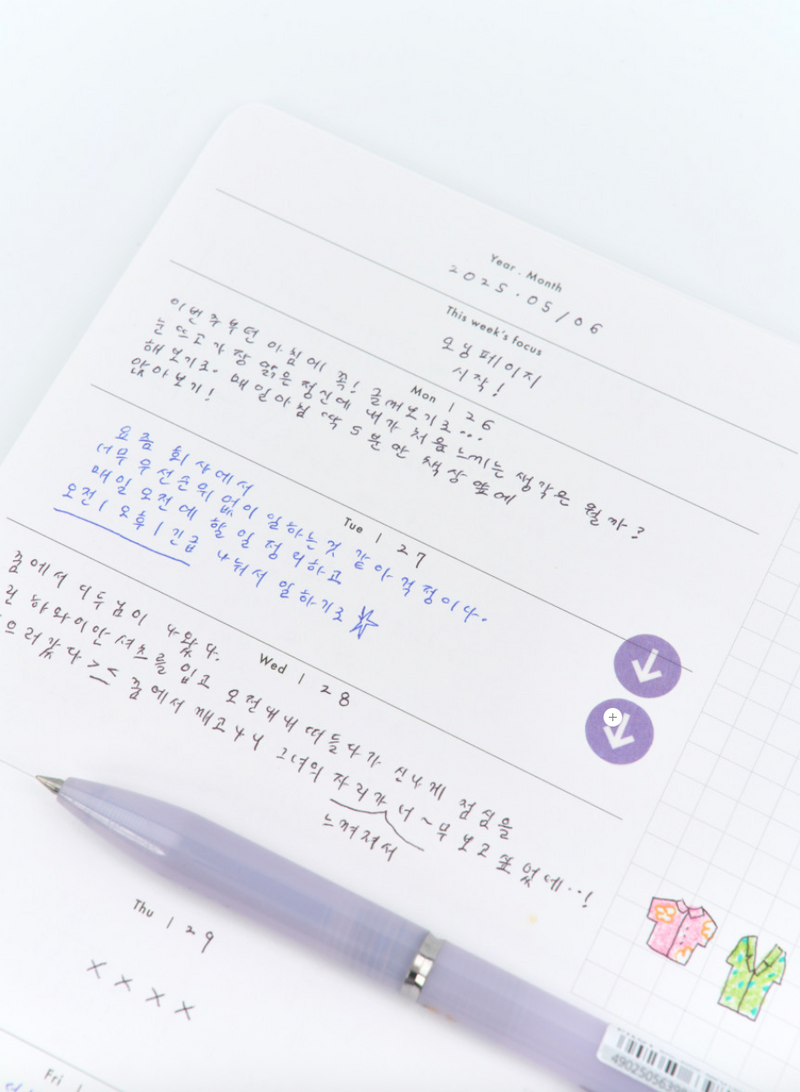 Year . Month
2025.05/06
This week's focus
모닝페이지
시작!
Mon | 26
이번주부턴 아침에 꼭! 글써보기로...
눈 뜨고 가장 맑은 정신에 내가 처음 느끼는 생각은 뭘까?
해보기로. 매일아침 딱 5분만 책상앞에
앉아보기!
Tue | 27
요즘 회사에서
너무 우선순위 없이 일하는것 같아 걱정이다.
매일 오전에 할 일 정리하고
오전/오후/긴급 나눠서 일하기로 ☆
Wed | 28
꿈에서 디두님이 나왔다.
하와이안셔츠를 입고 오전내내 떠들다가 신나게 점심을
으러갔다 >_< 꿈에서 깨고나니 그녀의 자리가 너~무 보고프었네..!
느껴져서
Thu | 29
x x x x
Fri |